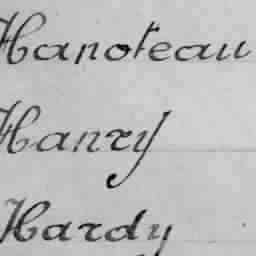 Hanoteau
Hanry
Hardy